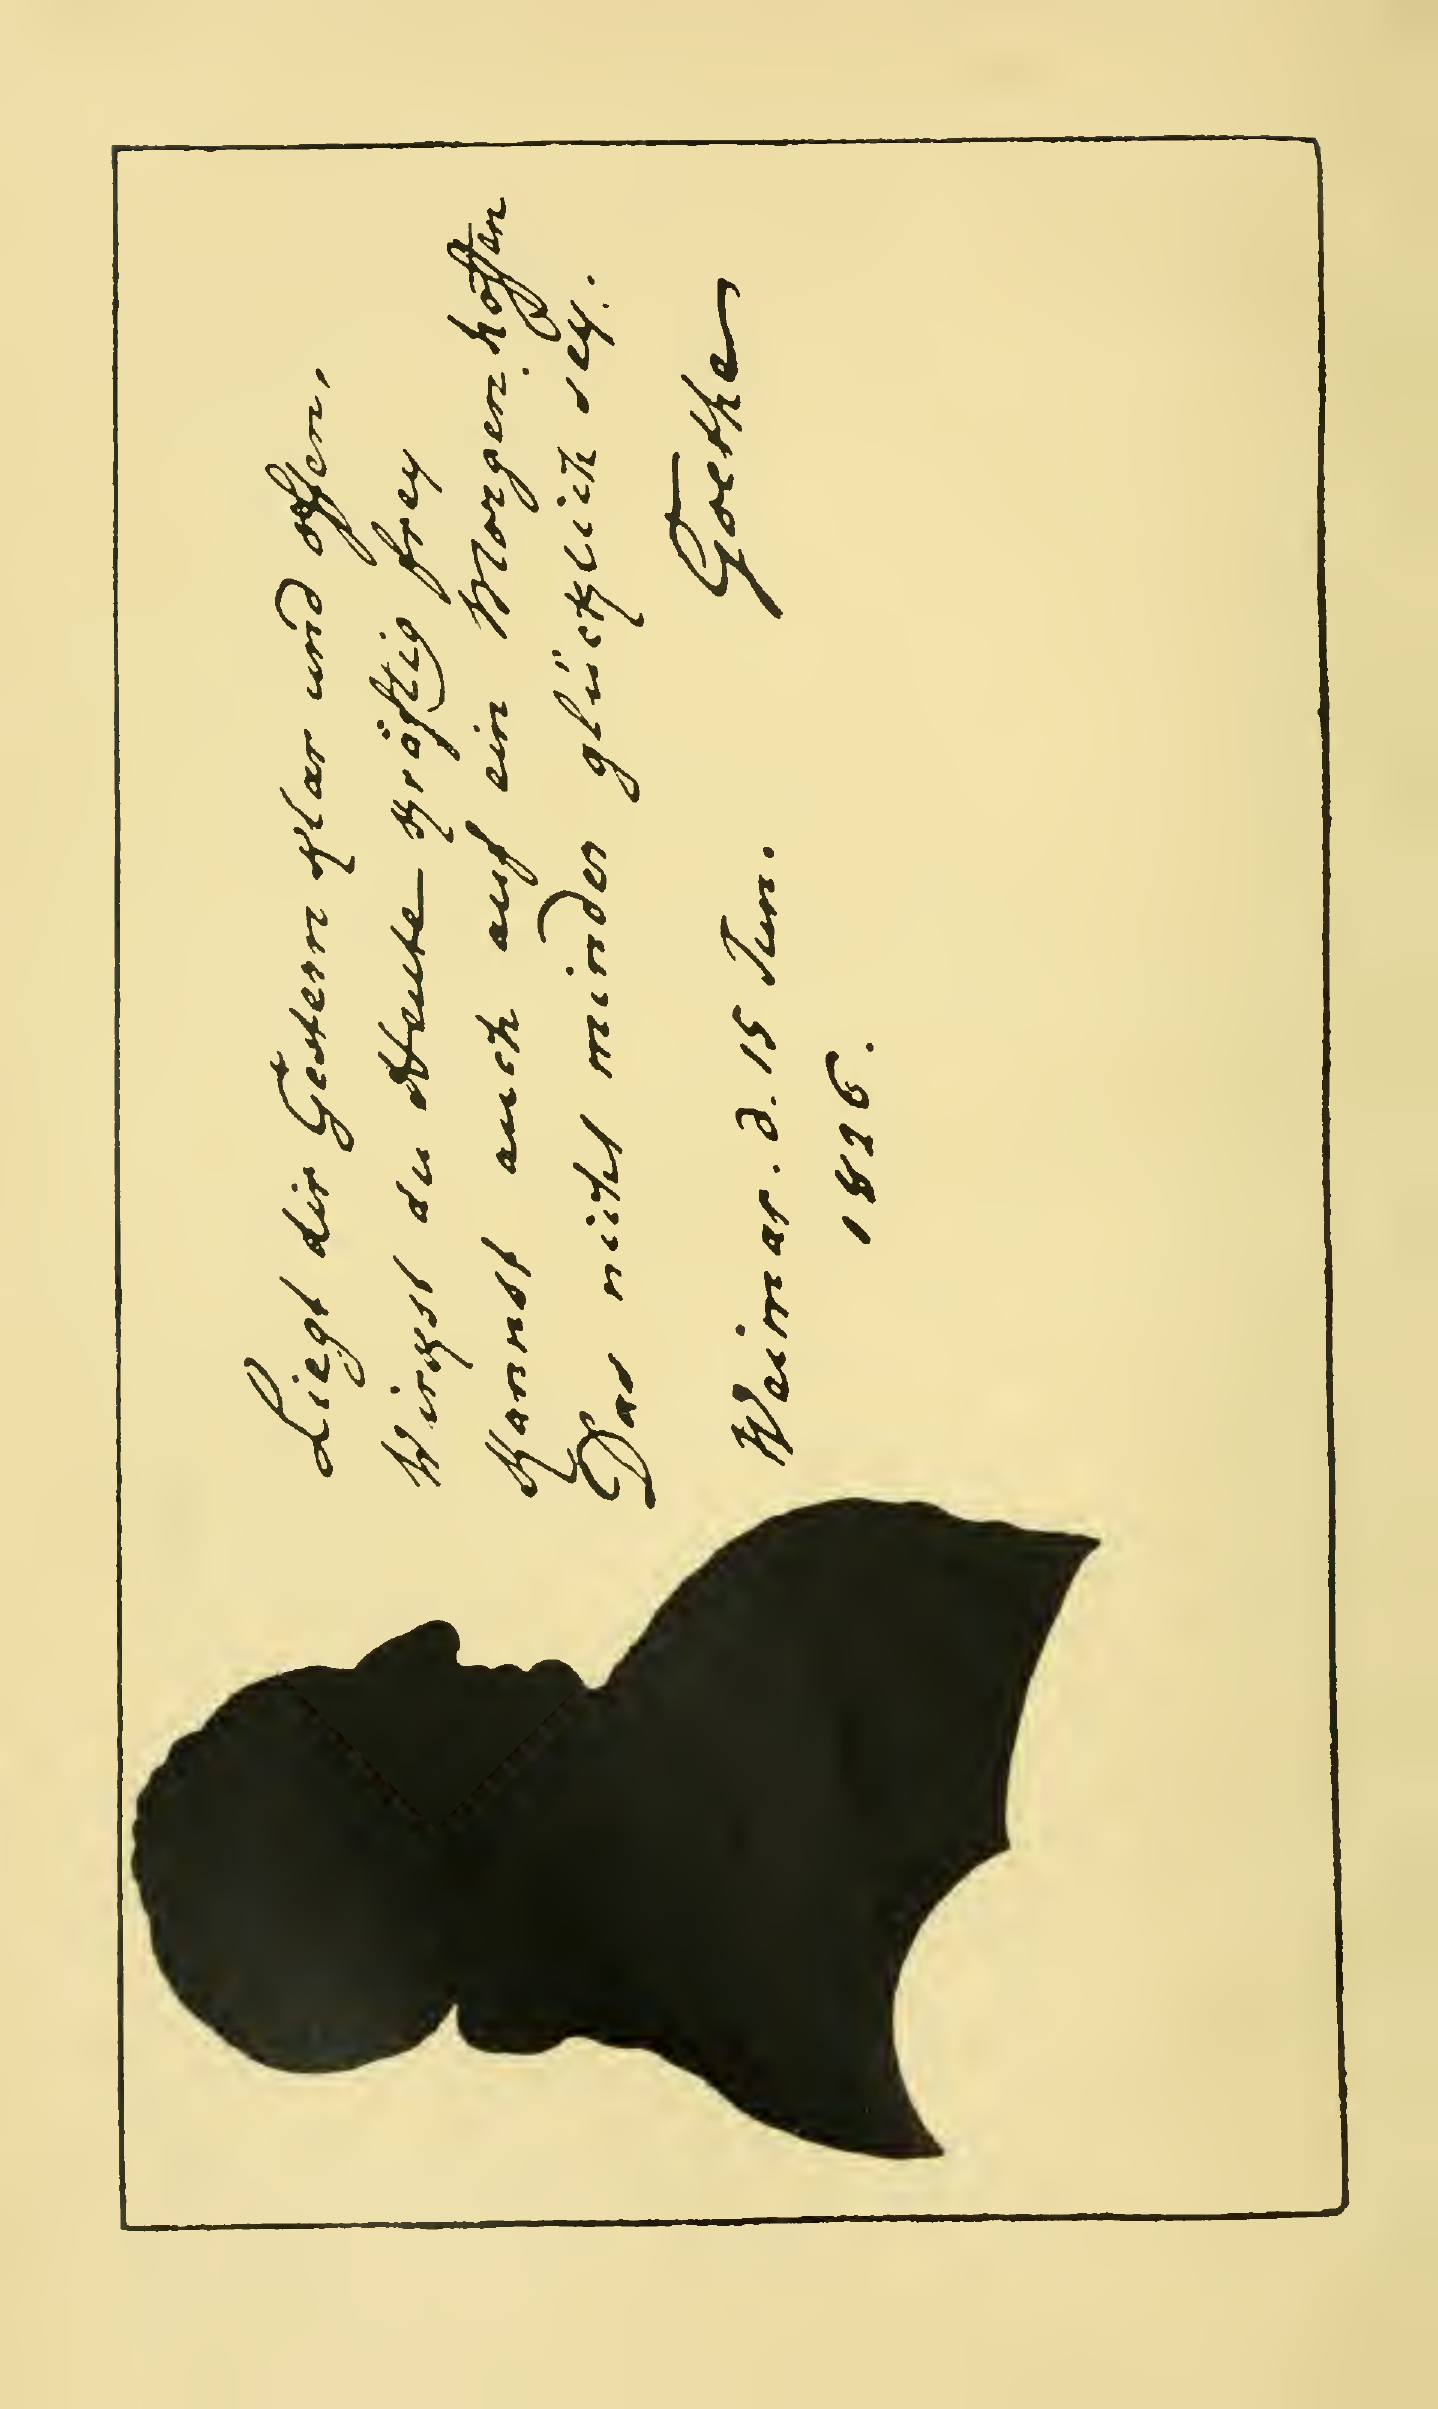 Liegt dir Gestern klar und offen,
Wirkst du Heute kräftig frey
Kannst auch auf ein Morgen hoffen
Das nicht minder glücklich sey.
Goethe
Weimar. d. 15 Jun.
1826.